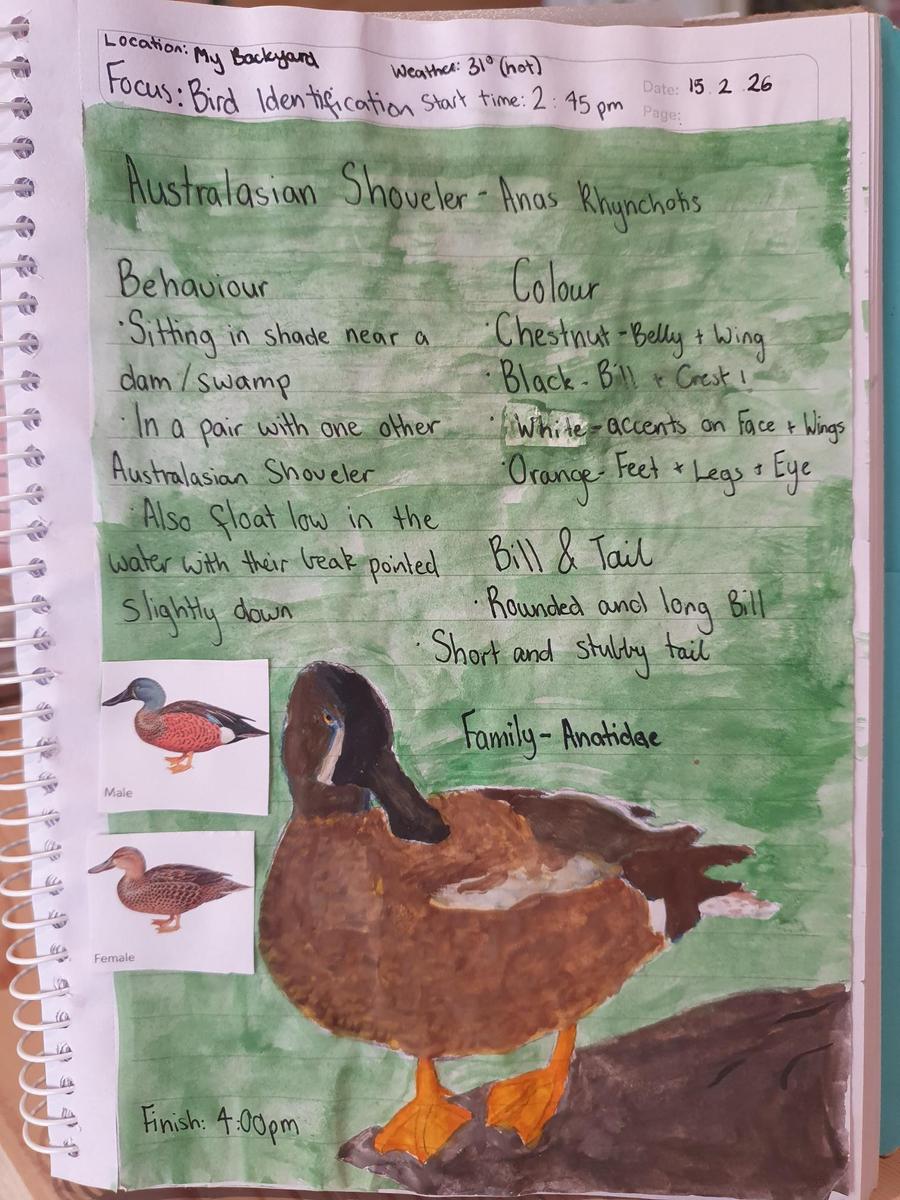 Location: My Backyard
Weather: 31° (hot)
Date: 15 . 2 . 26
Focus: Bird Identification Start time: 2 : 45 pm
Page:
Australasian Shoveler - Anas Rhynchotis
Behaviour
· Sitting in shade near a
dam / swamp
· In a pair with one other
Australasian Shoveler
· Also float low in the
water with their beak pointed
slightly down
Colour
· Chestnut - Belly + Wing
· Black - Bill + Crest
· White - accents on Face + Wings
· Orange - Feet + Legs + Eye
Bill & Tail
· Rounded and long Bill
· Short and stubby tail
Family - Anatidae
Male
Female
Finish: 4:00pm